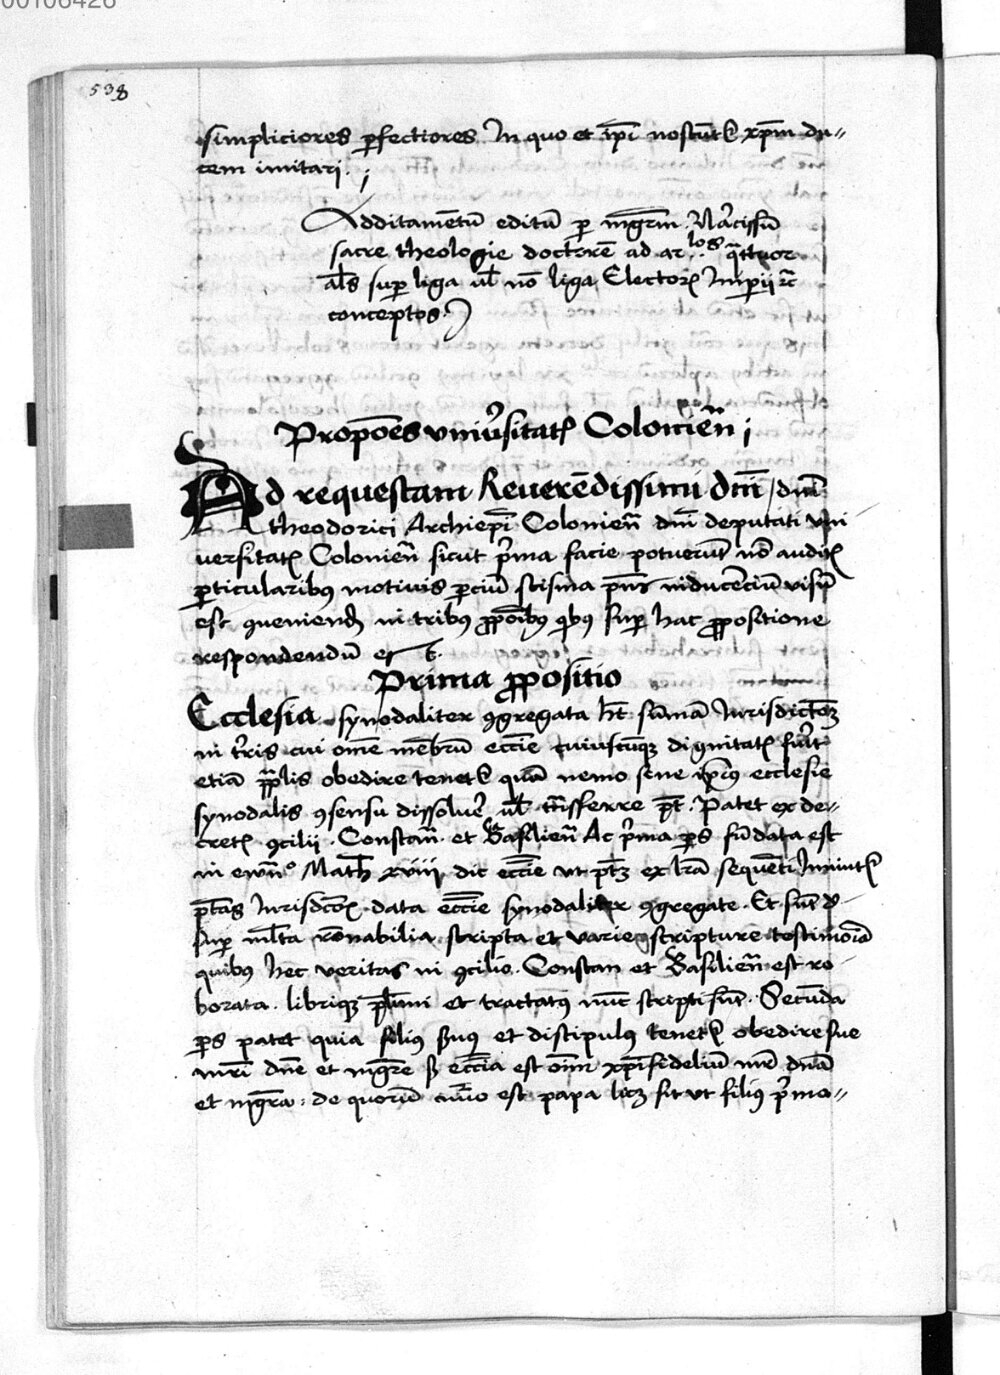 00106426
538
simpliciores perfectiores. In quo et ip̄i noscūtʳ xp̄m du⸗
cem imitari. ;
Additamētū editū per mgr̄m Narcissū
sacre theologie doctorē ad ar.los q̄ttuor
al̄s super liga ul̄ nō liga Electorꝝ Imperii ⁊c̄
conceptos.
Propōes vniūsitatꝭ Coloniēn̄ ;
Ad requestam Reuerēdissimi dn̄i / dn̄i
theodorici Archiepi Colonien̄ dn̄i deputati vni
uersitatꝭ Colonien̄ sicut pͥma facie potuerūt nō auditꝭ
ꝑticularibꝰ motiuis ꝑciū scisma pn̄s inducenciū visū
est ꝯueniendū in tribꝰ ꝓpōibꝰ qͥbꝰ super hac ꝓpositione
respondendū
Prima ꝓpositio
Ecclesia synodaliter ꝯgregata hꝫ sūmā Iurisdictōꝫ
in tr̄ris cui om̄e mēbrū eccl̄ie cuiuscūqꝫ dignitatꝭ fūit
etiā pp̄lis obedire tenetʳ quā nemo sine ip̄iꝰ ecclesie
synodalis ꝯsensu dissoluē ul̄ trāsferre pt̄. Patet ex de⸗
cretꝭ ꝯcilii. Constan̄. et Basilien̄ Ac pͥma ꝑs fūdata est
in ewn̄º Math̄ xviii dic eccl̄ie vt ptꝫ ex lr̄a sequēti Innuitʳ
ptās Iurisdictōis data eccl̄ie synodaliter ꝯgregate. Et sūt
super ml̄ta rōnabilia scripta et varie scripture testimōia
quibus hec veritas in ꝯcilio. Constan et Basilien̄ est ro⸗
borata. libriqꝫ plūmi et tractatꝰ nūc scripti sūt. Secūda
ꝑs patet quia filiꝰ suꝰ et discipulꝰ tenetʳ obedire sue
mr̄i dn̄e et mgr̄e sꝫ eccl̄ia est oīm xp̄ifideliū mr̄ dn̄a
et mgr̄a: de quorū nūo est papa licꝫ sit vt filiꝰ pͥmo⸗